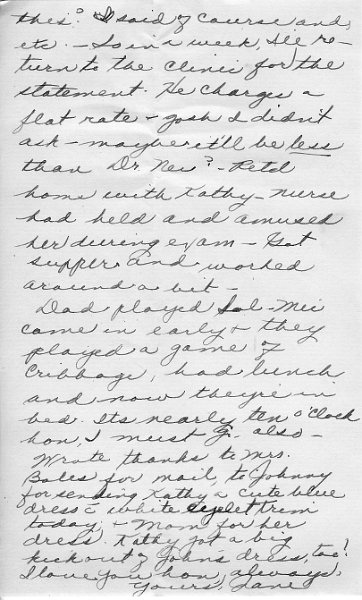 this? I said of course and,
etc. - So in a week, I'll re-
turn to the clinic for the
statement. He charges a
flat rate - gosh I didn't
ask - maybe it'll be less
than Dr. Nei? - Retd
home with Kathy - nurse
had held and amused
her during exam - Got
supper and worked
around a bit -
Dad played Sol - Mei
came in early & they
played a game of
Cribbage, had lunch
and now they're in
bed. Its nearly ten o'clock
hon, I must go also -
Wrote thanks to Mrs.
Bales for mail, to Johnny
for sending Kathy a cute blue
dress c̄ white eyelet trim
today, & Mom for her
dress. Kathy got a big
kick out of John's dress, too!
I love you hon, always,
Yours, Jane